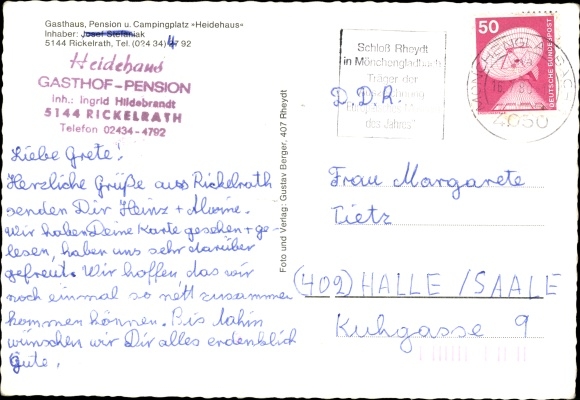 Gasthaus, Pension u. Campingplatz »Heidehaus«
Inhaber: Josef Stefaniak
5144 Rickelrath, Tel. (024 34) 47 92
Heidehaus
GASTHOF-PENSION
Inh.: Ingrid Hildebrandt
5144 RICKELRATH
Telefon 02434-4792
Liebe Grete!
Herzliche Grüße aus Rickelrath
senden Dir Heinz + Marine.
Wir haben Deine Karte gesehen + ge-
lesen, haben uns sehr darüber
gefreut. Wir hoffen das wir
noch einmal so nett zusammen
kommen können. Bis dahin
wünschen wir Dir alles erdenklich
Gute.
Foto und Verlag: Gustav Berger, 407 Rheydt
Schloß Rheydt
in Mönchengladbach
Träger der
des Jahres"
50
DEUTSCHE BUNDESPOST
MÖNCHENGLADBACH
4050
D.D.R.
Frau Margarete
Tietz
(402) HALLE / SAALE
Kuhgasse 9